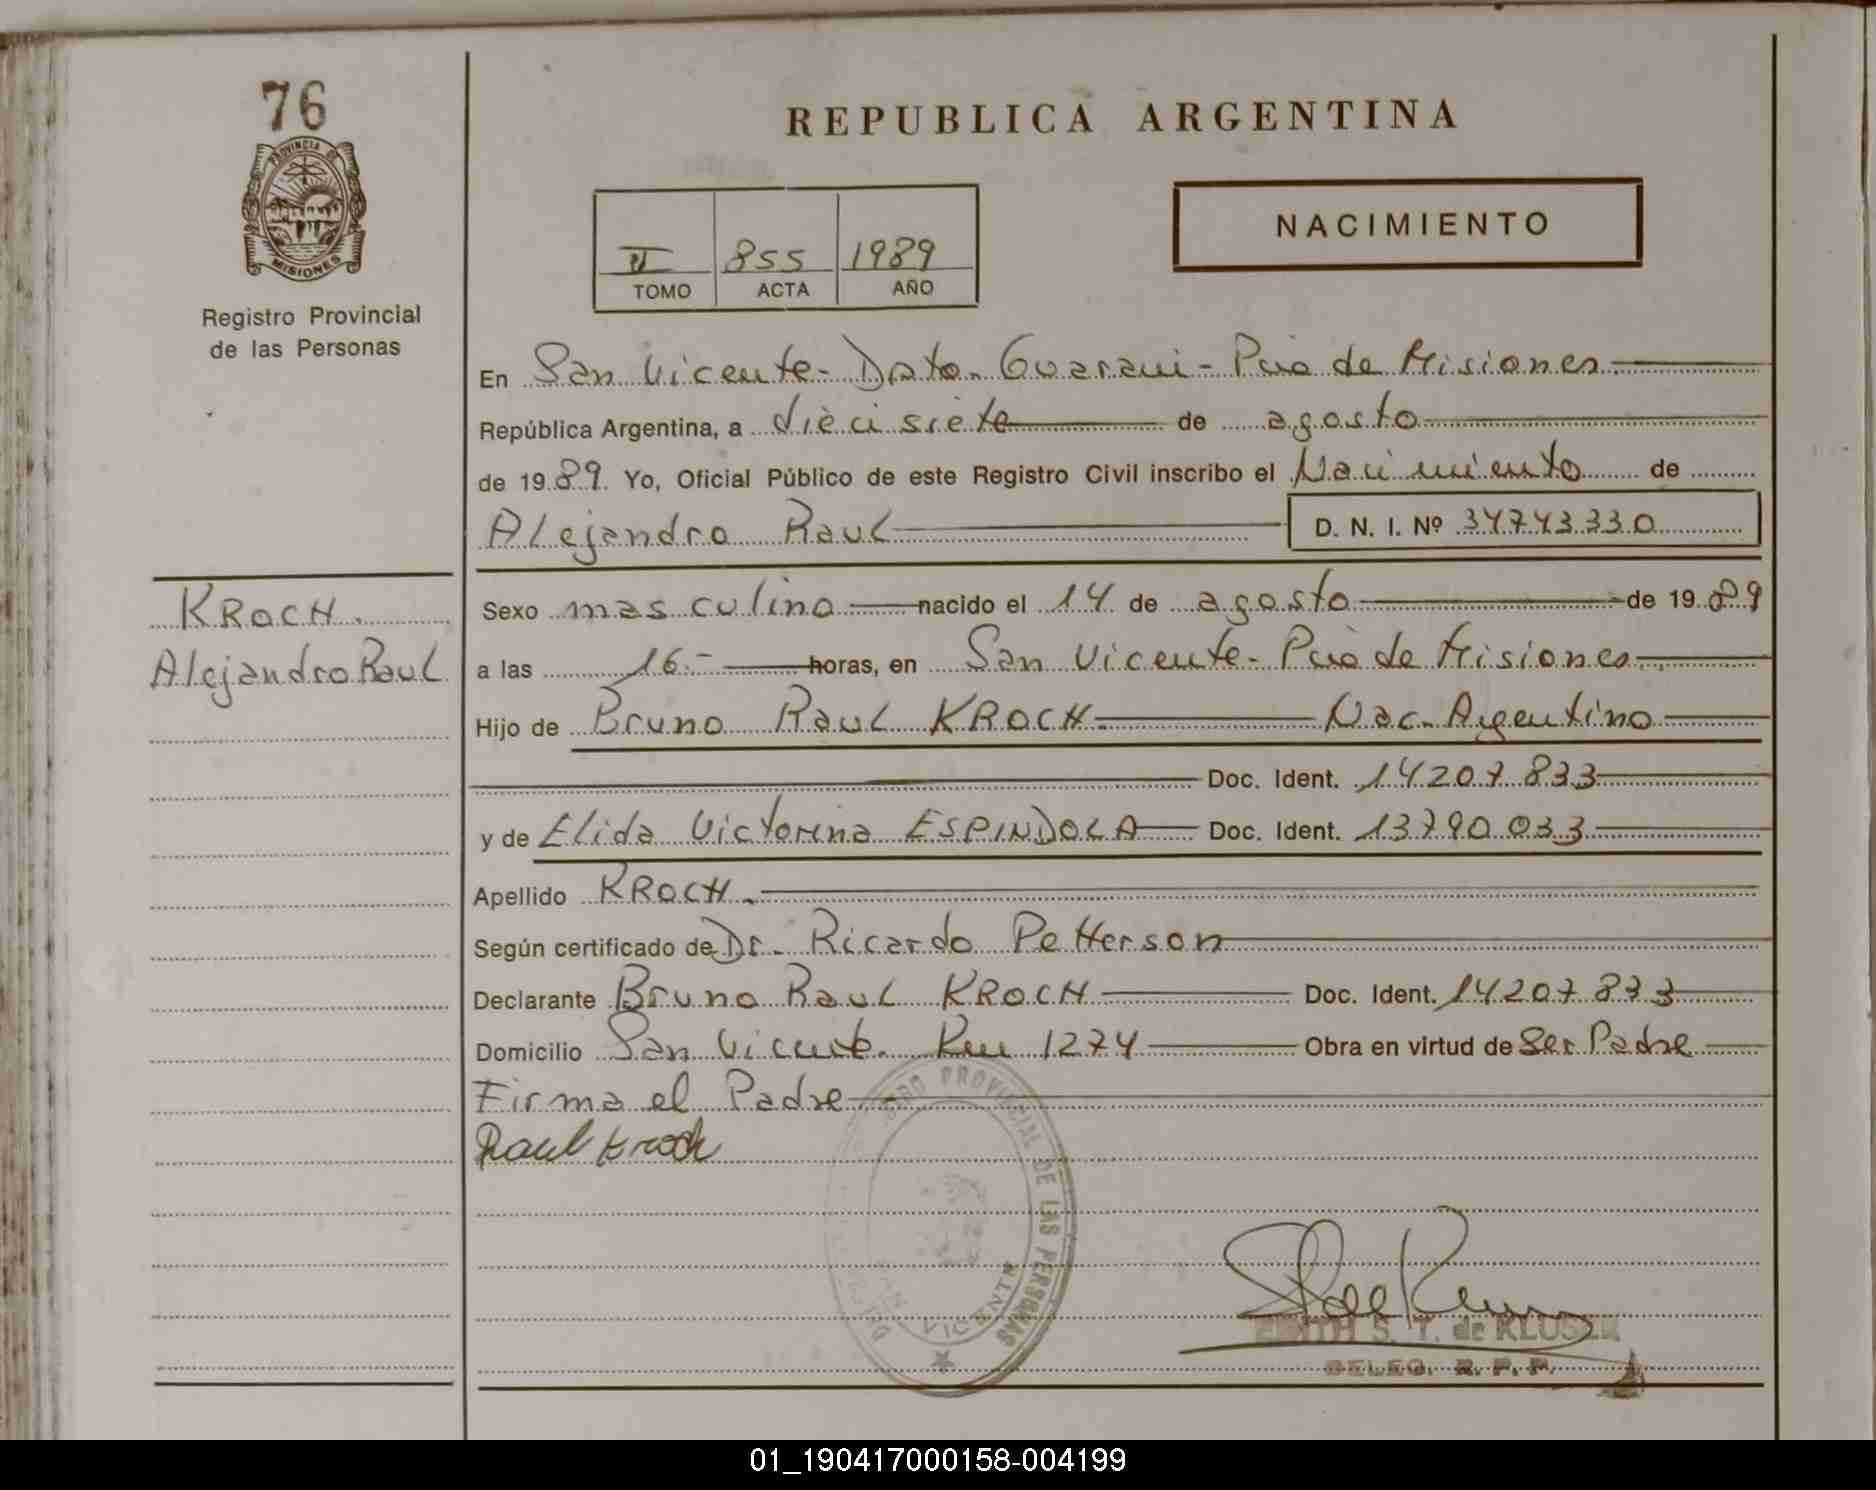 76
PROVINCIA DE
MISIONES
Registro Provincial
de las Personas
REPUBLICA ARGENTINA
II 855 1989
TOMO ACTA AÑO
NACIMIENTO
En San Vicente - Dpto. Guarani - Pcia de Misiones
República Argentina, a diecisiete de agosto
de 1989. Yo, Oficial Público de este Registro Civil inscribo el Nacimiento de
Alejandro Raul D. N. I. Nº 34743330
KROCH.
Alejandro Raul
Sexo masculino nacido el 14 de agosto de 1989
a las 16.- horas, en San Vicente - Pcia de Misiones
Hijo de Bruno Raul KROCH Nac. Argentino
Doc. Ident. 14207833
y de Elida Victorina ESPINDOLA Doc. Ident. 13790033
Apellido KROCH.
Según certificado de Dr. Ricardo Petterson
Declarante Bruno Raul KROCH Doc. Ident. 14207833
Domicilio San Vicente. Km 1274 Obra en virtud de Ser Padre
Firma el Padre
Raul Kroch
PROVINCIAL DE LAS PERSONAS
VICENTE
S. T. de KLUSER
DELEG. R. P. P.
01_190417000158-004199